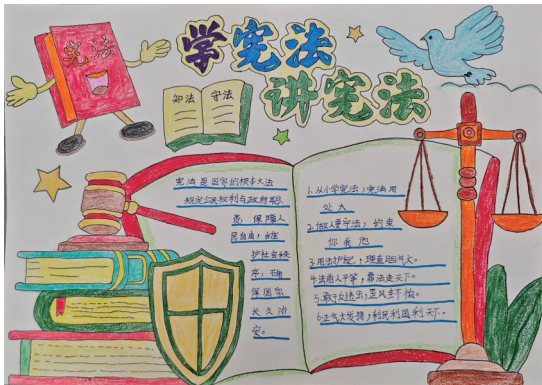 学宪法
讲宪法
宪法
知法 守法
宪法是国家的根本大法
规定公民权利与政府职
责，保障人
民自由，永维
护社会秩
序，确
保国家
长久治
安。
1.从小学宪法，宪法用
处大
2.做人要守法，约束
你我他
3.用法护己，理直迴气大。
4.法前人平等，靠法走天下。
5.敢于违法，
6.正气大发扬，利民利国利天下。